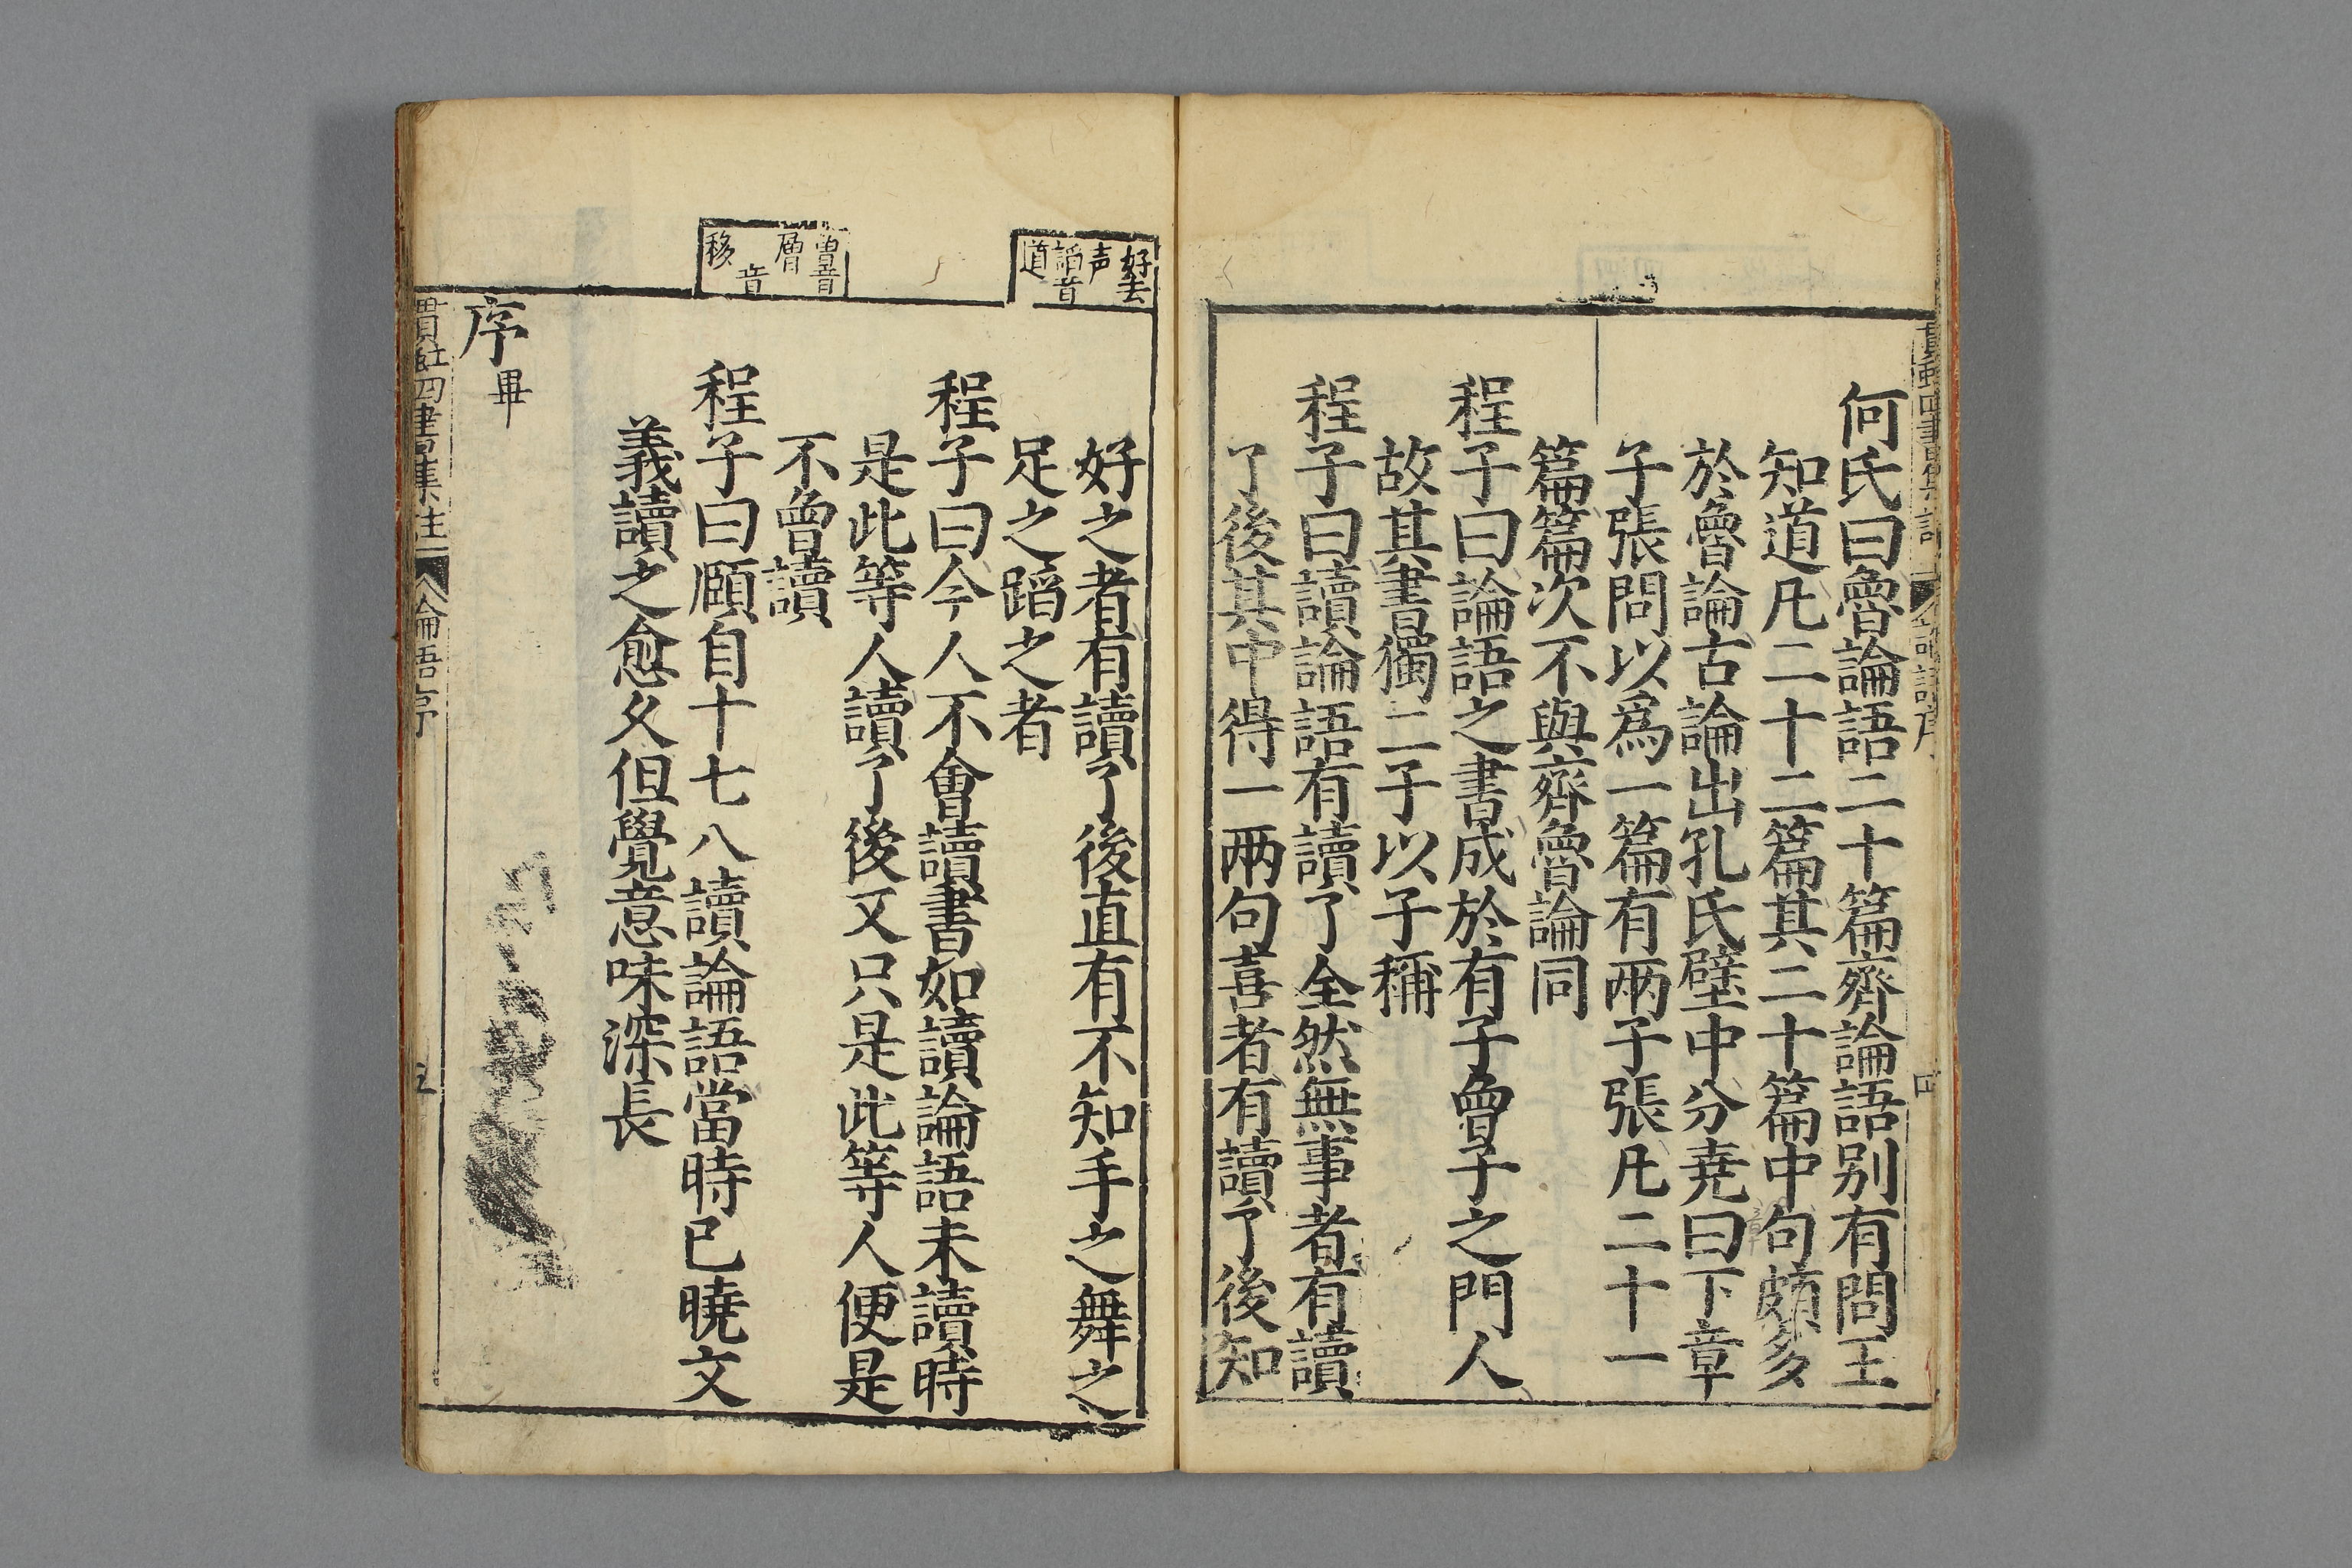 何氏曰魯論語二十篇齊論語别有問王
知道凡二十二篇其二十篇中句頗多
於魯論古論出孔氏壁中分堯曰下章
子張問以爲一篇有兩子張凡二十一
篇篇次不與齊魯論同
程子曰論語之書成於有子曾子之門人
故其書獨二子以子稱
程子曰讀論語有讀了全然無事者有讀
了後其中得一兩句喜者有讀了後知
好去
声
蹈音
道
好之者有讀了後直有不知手之舞之
足之蹈之者
程子曰今人不會讀書如讀論語未讀時
是此等人讀了後又只是此等人便是
曽音
層
音
移
不曾讀
程子曰頤自十七八讀論語當時已曉文
義讀之愈久但覺意味深長
序畢
四書集註 論語序